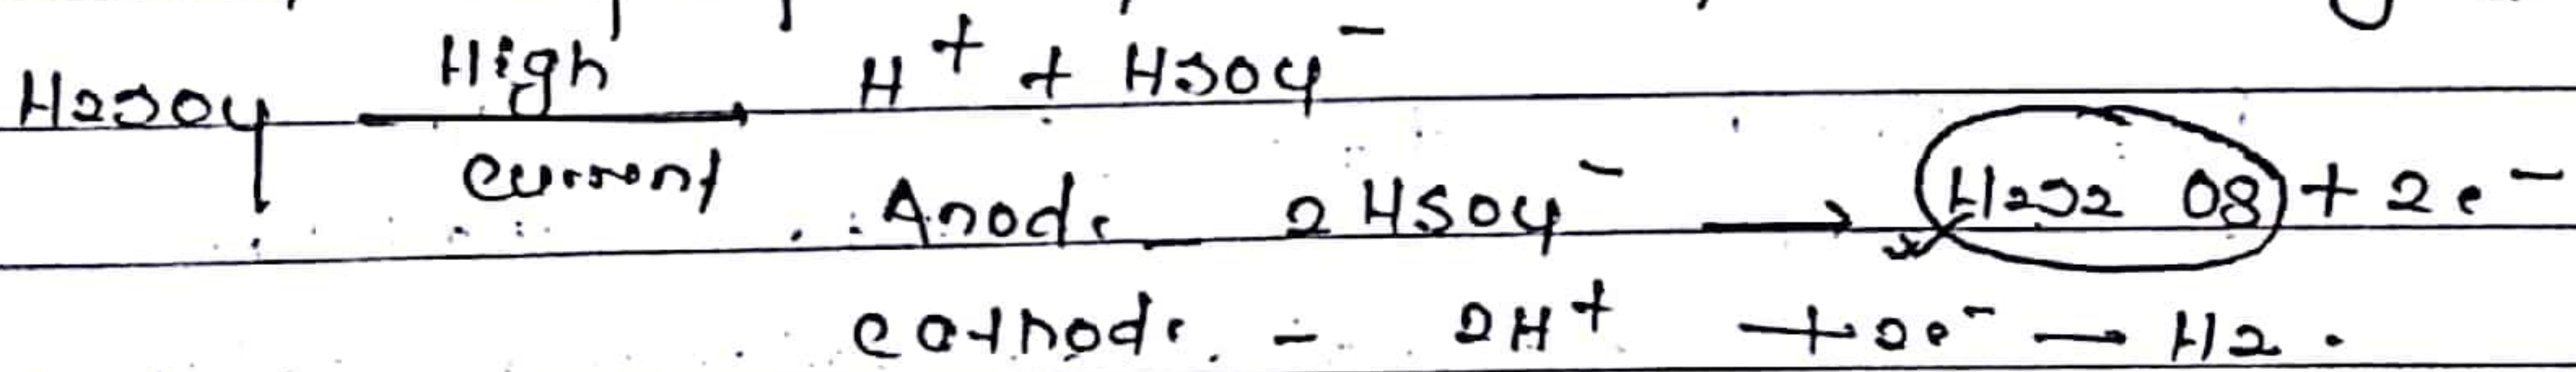 H2SO4 —High current→ H⁺ + HSO4⁻
Anode - 2HSO4⁻ → H2S2O8 + 2e⁻
Cathode - 2H⁺ + 2e⁻ → H2.